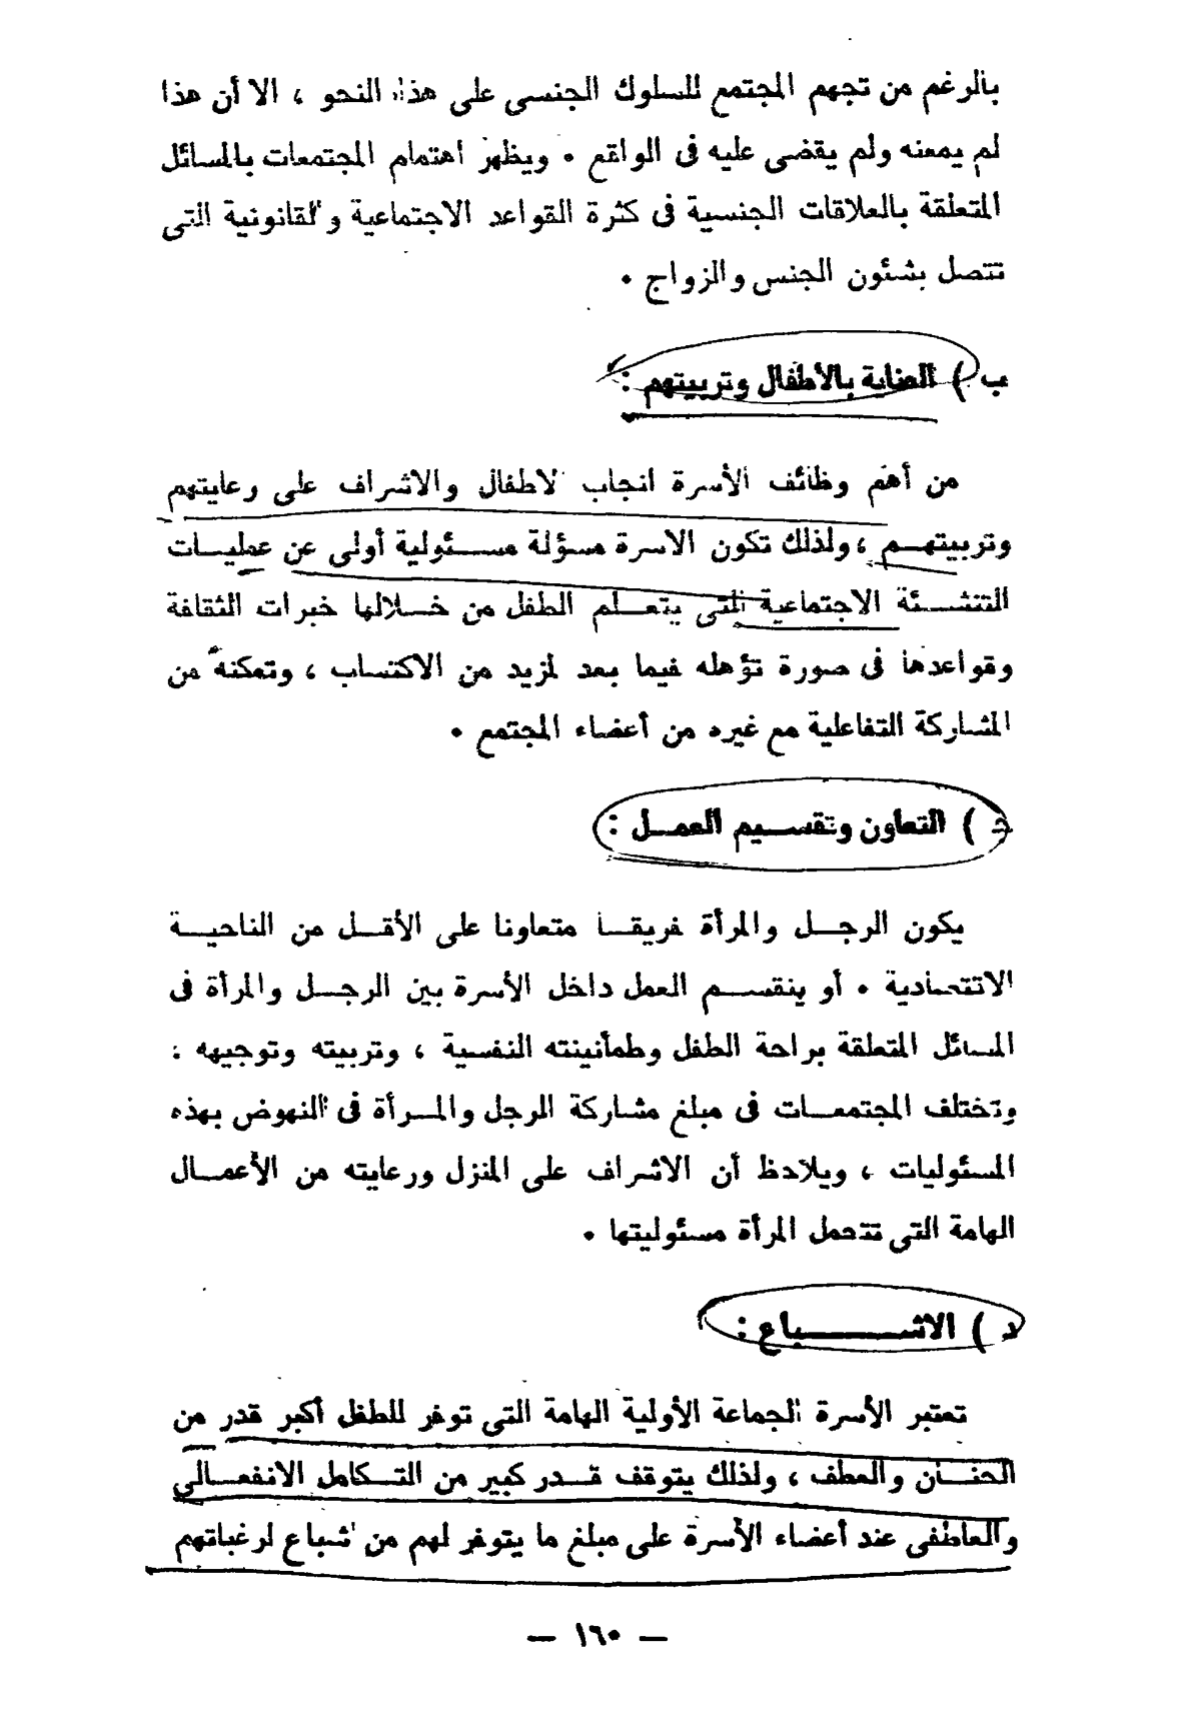 بالرغم من تجهم المجتمع للسلوك الجنسى على هذا النحو ، الا أن هذا
لم يمعنه ولم يقضى عليه فى الواقع ٠ ويظهر اهتمام المجتمعات بالمسائل
المتعلقة بالعلاقات الجنسية فى كثرة القواعد الاجتماعية والقانونية التى
تتصل بشئون الجنس والزواج ٠
ب ) العناية بالأطفال وتربيتهم :
من أهم وظائف الأسرة انجاب الاطفال والاشراف على رعايتهم
وتربيتهـم ، ولذلك تكون الاسرة مسؤلة مسـئولية أولى عن عمليـات
التنشـئة الاجتماعية التى يتعـلم الطفل من خـلالها خبرات الثقافة
وقواعدها فى صورة تؤهله فيما بعد لمزيد من الاكتساب ، وتمكنه من
المشاركة التفاعلية مع غيره من أعضاء المجتمع ٠
ج ) التعاون وتقسـيم العمـل :
يكون الرجـل والمرأة فريقـا متعاونا على الأقـل من الناحيـة
الاقتصادية ٠ أو ينقسـم العمل داخل الأسرة بين الرجـل والمرأة فى
المسائل المتعلقة براحة الطفل وطمأنينته النفسية ، وتربيته وتوجيهه :
وتختلف المجتمعـات فى مبلغ مشاركة الرجل والمـرأة فى النهوض بهذه
المسئوليات ، ويلاحظ أن الاشراف على المنزل ورعايته من الأعمـال
الهامة التى تتحمل المرأة مسئوليتها ٠
د ) الاشــــباع :
تعتبر الأسرة الجماعة الأولية الهامة التى توفر للطفل أكبر قدر من
الحنـان والعطف ، ولذلك يتوقف قـدر كبير من التـكامل الانفعـالى
والعاطفى عند أعضاء الأسرة على مبلغ ما يتوفر لهم من اشباع لرغباتهم
— ١٦٠ —